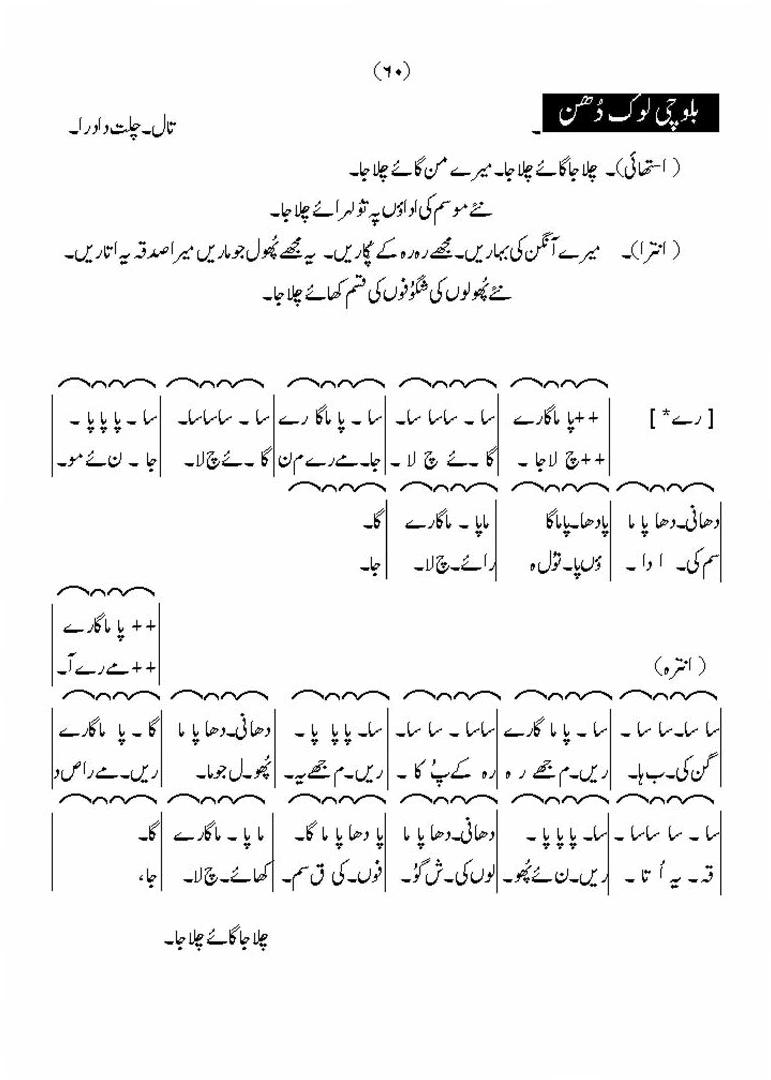 (۶۰)
بلوچی لوک دُھن۔ تال۔ چلت دادرا۔
(استھائی)۔ چلا جا گائے چلا جا۔ میرے من گائے چلا جا۔
نئے موسم کی اداؤں پہ توُ لہرائے چلا جا۔
(انترا)۔ میرے آنگن کی بہاریں۔ مجھے رہ رہ کے پُکاریں۔ یہ مجھے پُھول جو ماریں میرا صدقہ یہ اتاریں۔
نئے پُھولوں کی شگوُفوں کی قسم کھائے چلا جا۔
[رے*] ++پا ماگارے سا ۔ ساسا سا۔ سا ۔ پا ماگا رے سا ۔ ساساسا۔ سا ۔ پا پا پا ۔
++چ لا جا ۔ گا ۔ ئے چ لا ۔ جا۔ مے رے م ن گا ۔ ئے چ لا۔ جا ۔ ن ئے مو۔
دھانی۔ دھا پا ما پادھا۔ پاماگا ماپا ۔ ماگارے گا۔
سم کی۔ ا دا ۔ ؤں پا۔ توُل ہ رائے۔ چ لا۔ جا۔
++ پا ماگارے
(انترہ) ++مے رے آ۔
سا سا۔ سا سا ۔ سا ۔ پا ما گارے ساسا ۔ سا سا۔ سا۔ پاپا پا ۔ دھانی۔ دھا پا ما گا ۔ پا ماگارے
گن کی۔ ب ہا۔ ریں۔ م جھے ر ہ رہ کے پُ کا ۔ ریں۔ م جھے یہ۔ پُھو۔ ل جو ما۔ ریں۔ مے را ص د
سا ۔ سا ساسا ۔ سا۔ پا پا پا۔ دھانی۔ دھا پا ما پا دھا پا ما گا۔ ما پا ۔ ماگارے گا۔
قہ ۔ یہ اُ تا ۔ ریں۔ ن ئے پُھو۔ لوں کی۔ ش گوُ۔ فوں۔ کی ق سم۔ کھائے۔ چ لا۔ جا،
چلا جا گائے چلا جا۔